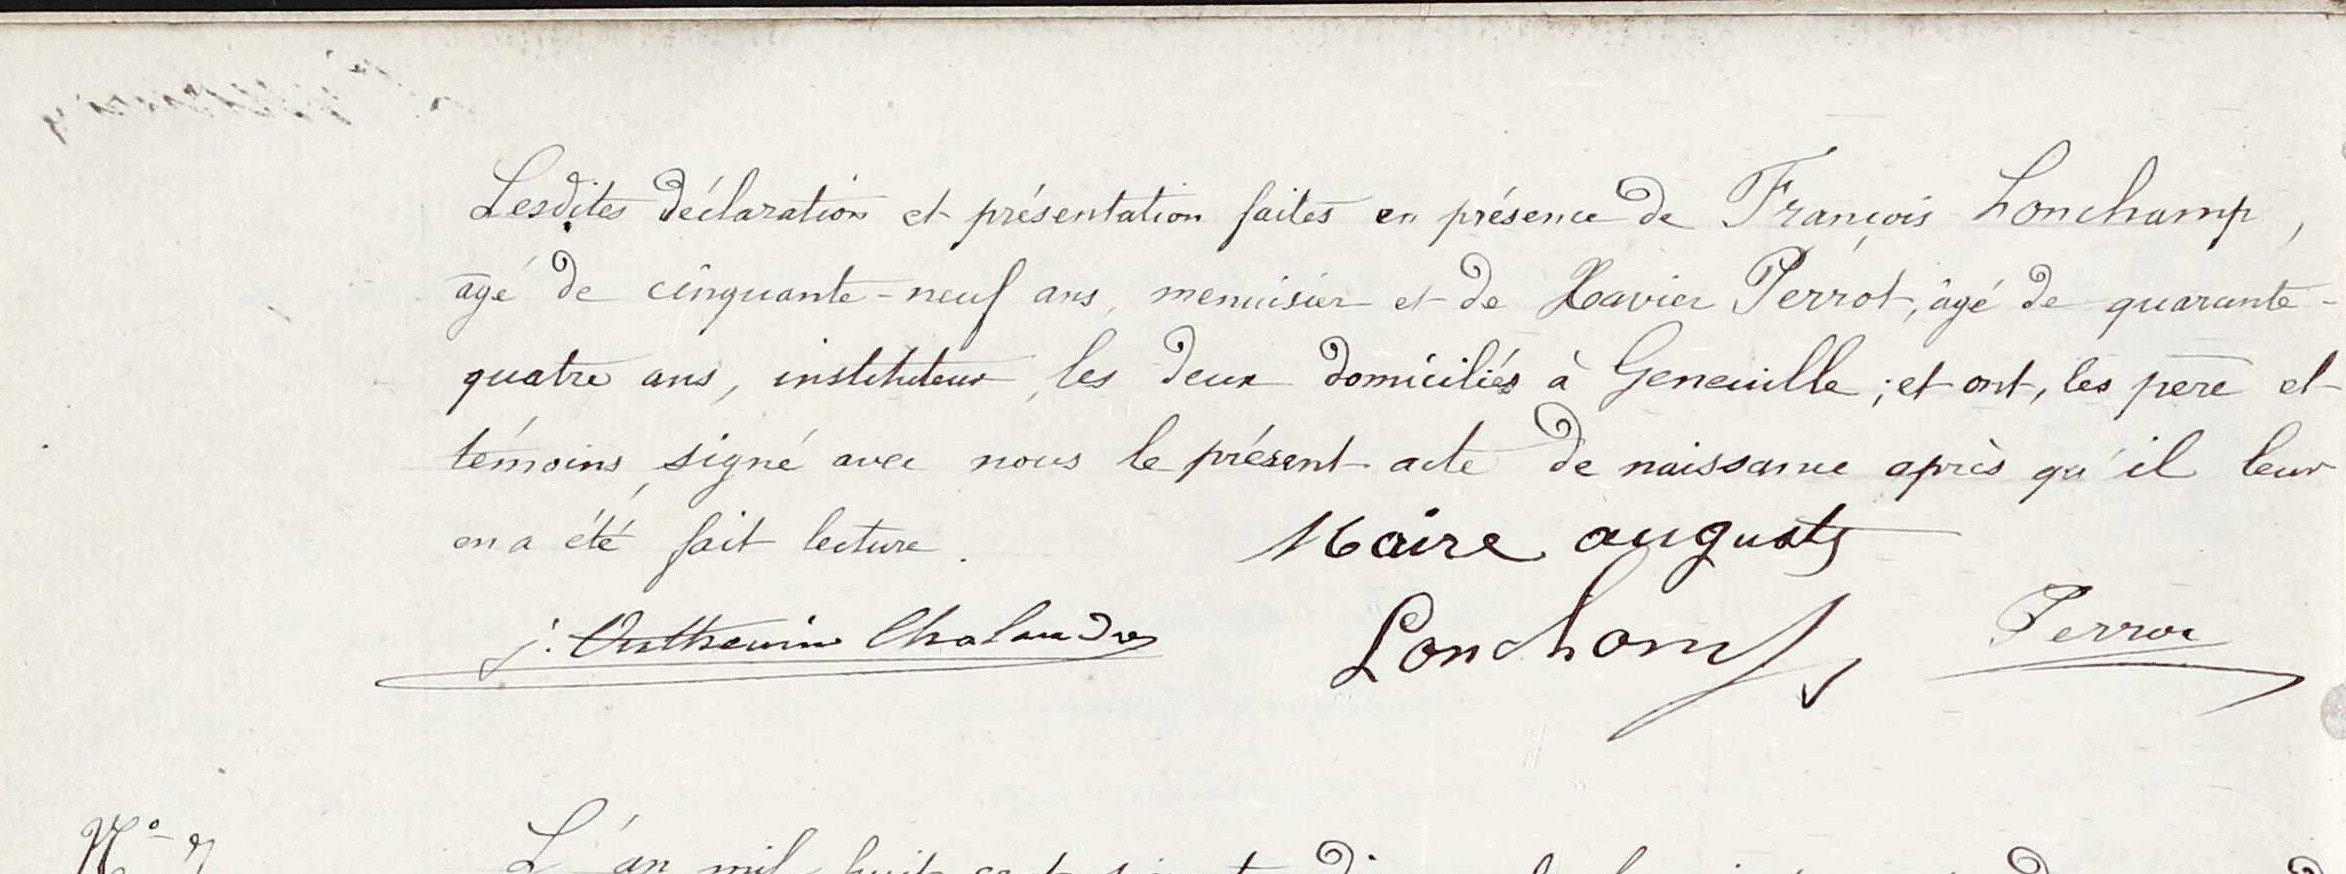 Lesdites déclaration et présentation faites en présence de François Lonchamp,
âgé de cinquante-neuf ans, menuisier et de Xavier Perrot, âgé de quarante-
quatre ans, instituteur, les deux domiciliés à Geneuille ; et ont, les père et
témoins, signé avec nous le présent acte de naissance après qu'il leur
en a été fait lecture.
Maire auguste
j. Outhenin Chalandre
Lonchamp
Perrot
N° 7
L'an mil huit cent soixante-dix